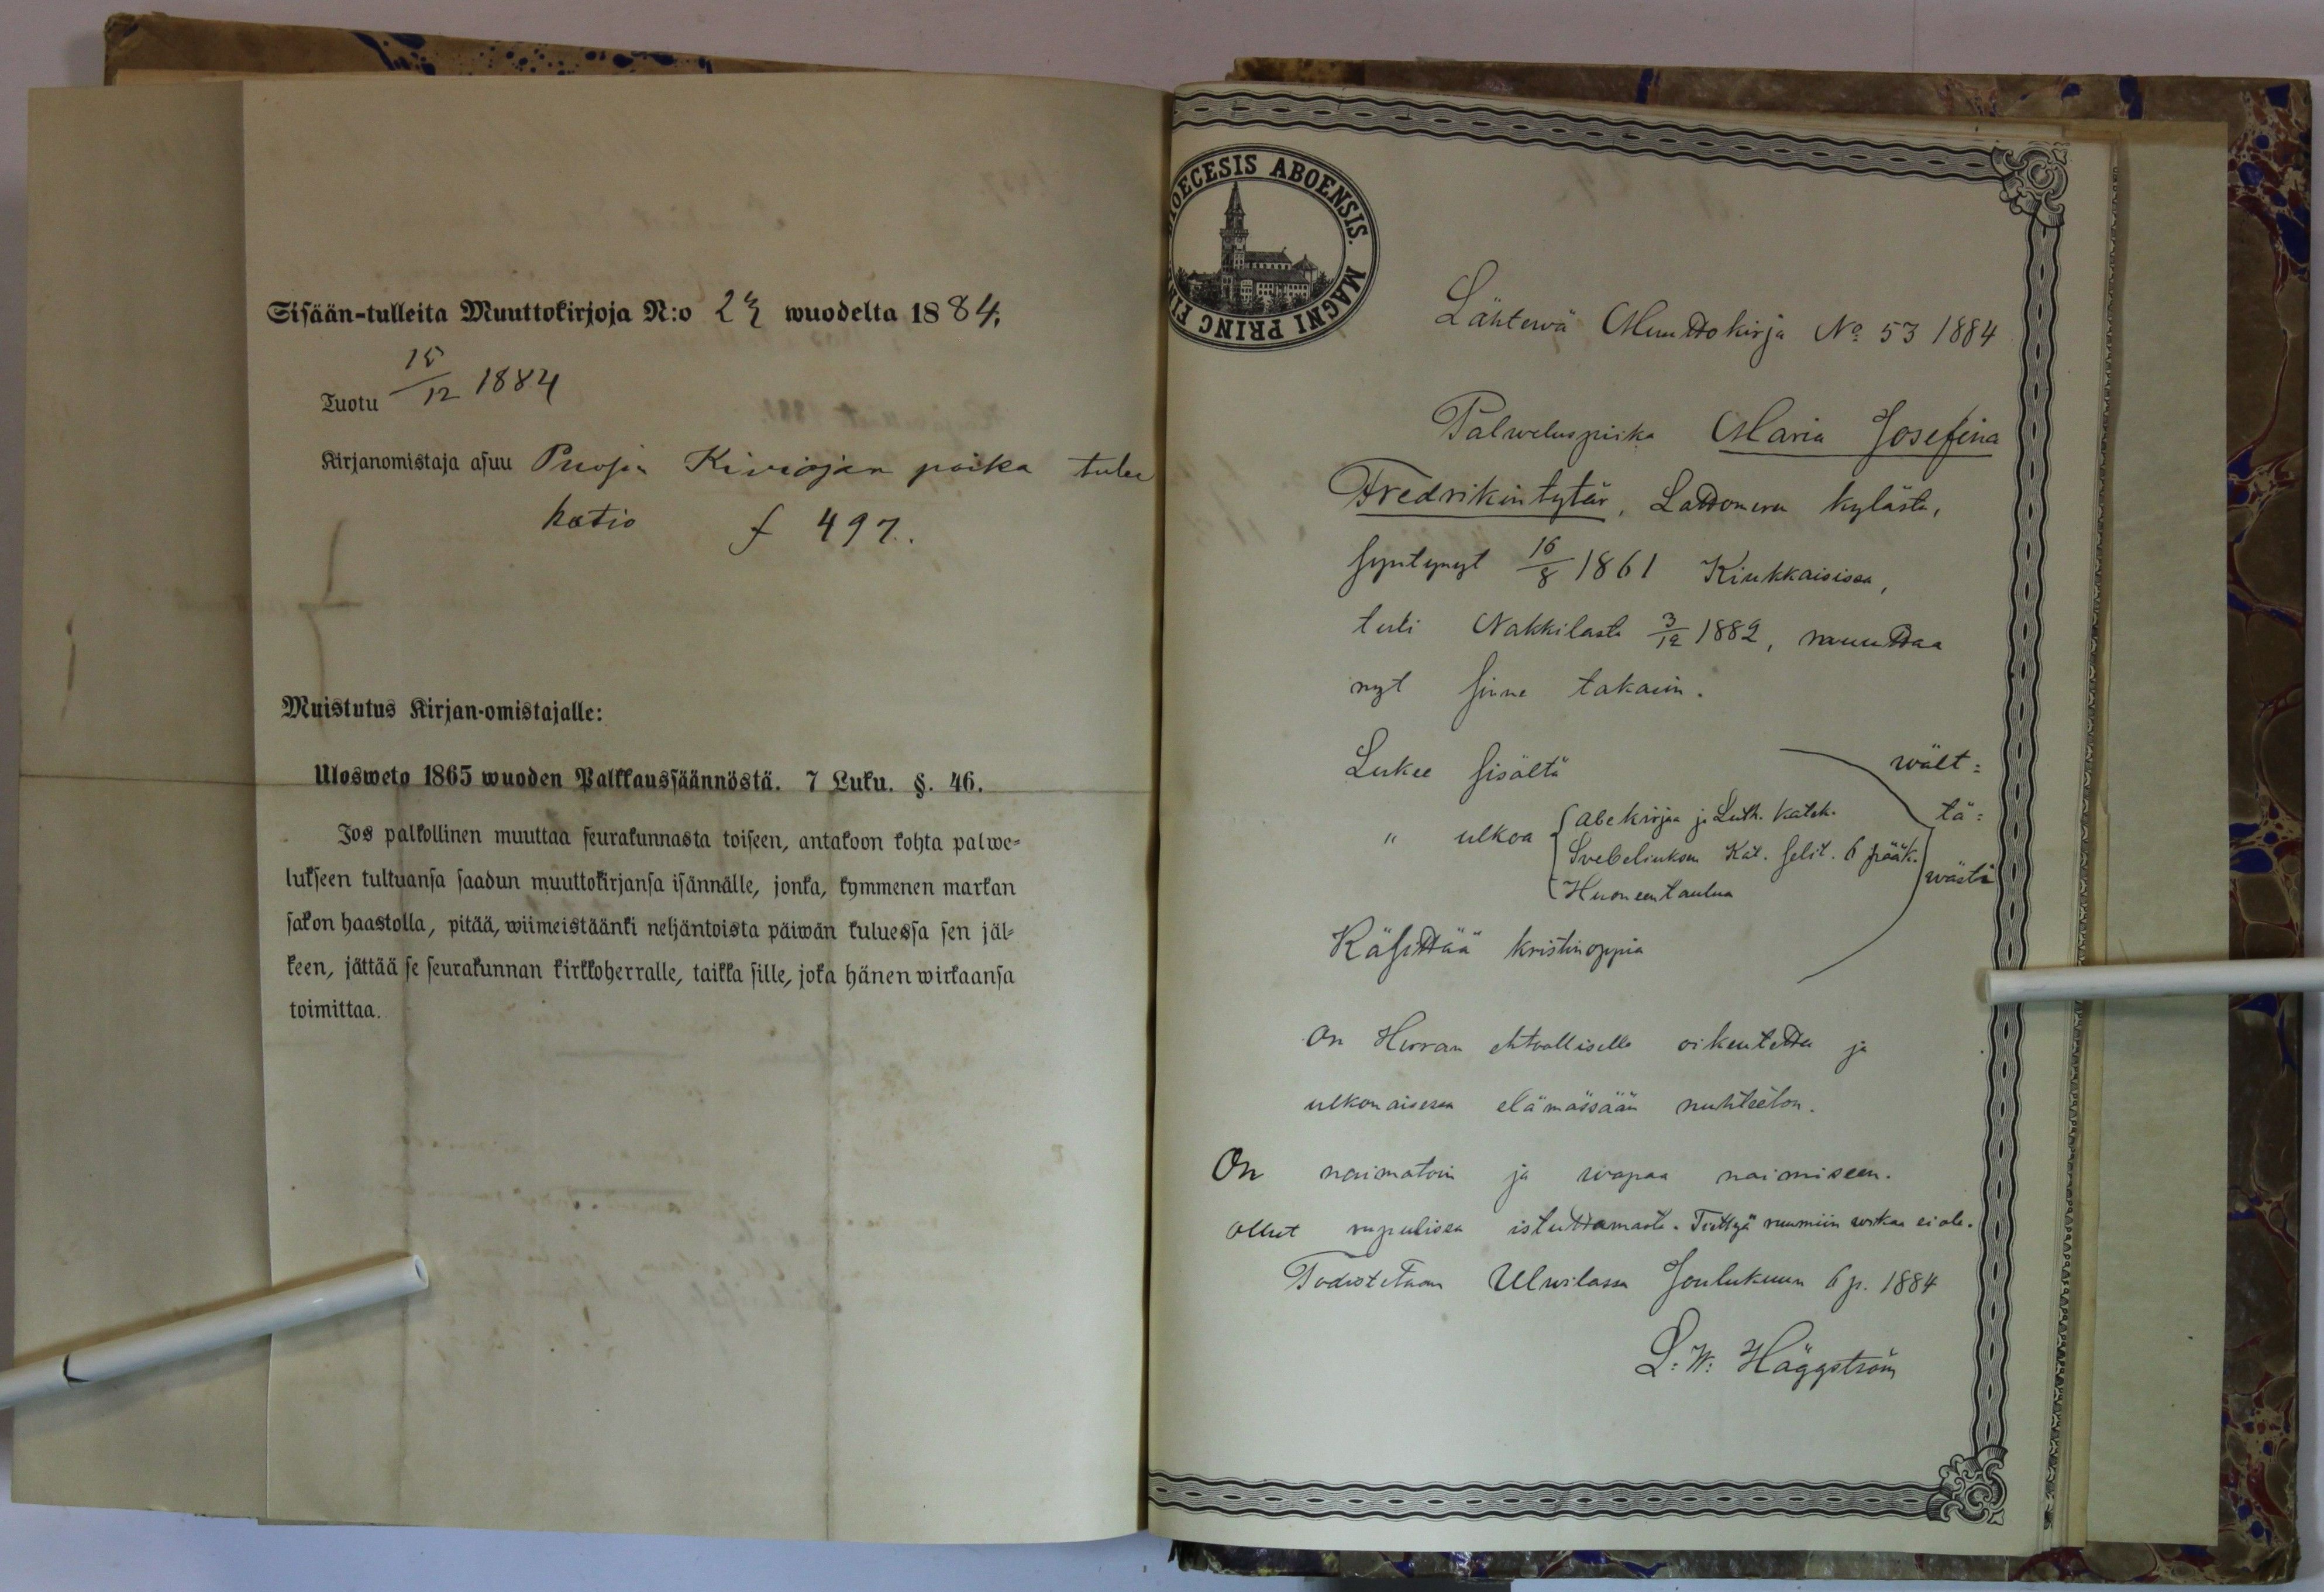 Sisään-tulleita Muuttokirjoja N:o wuodelta 1884.
Tuotu 15/12 1884
Kirjanomistaja asuu Kiviojan poika tulee
f 497.
Muistutus Kirjan-omistajalle:
Ulosweto 1865 wuoden Palkkaussäännöstä. 7 Luku. §. 46.
Jos palkollinen muuttaa seurakunnasta toiseen, antakoon kohta palwe-
lukseen tultuansa saadun muuttokirjansa isännälle, jonka, kymmenen markan
sakon haastolla, pitää, wiimeistäänki neljäntoista päiwän kuluessa sen jäl-
keen, jättää se seurakunnan kirkkoherralle, taikka sille, joka hänen wirkaansa
toimittaa.
DIOECESIS ABOENSIS. MAGNI PRINC FIN
Lähtewä Muuttokirja No 53 1884
Palweluspiika Maria Josefina
Fredrikintytär, Lattomeren kylästä,
syntynyt 16/8 1861 Kiukkaisissa,
tuli Nakkilasta 3/12 1882, muuttaa
nyt sinne takasin.
Lukee sisältä
" ulkoa
abekirjaa ja Luth. Katek.
Svebeliuksen Kat. selit. 6 pääk.
Huoneentaulua
Käsittää kristinoppia
wält=
tä=
wästi
On Herran ehtoolliselle oikeutettu ja
ulkonaisessa elämässään nuhteeton.
On naimatoin ja wapaa naimiseen.
ollut rupulissa istuttamasta. Tiettyä ruumiin wikaa ei ole.
Todistetaan Ulwilassa Joulukuun 6 p. 1884
L. W. Häggström